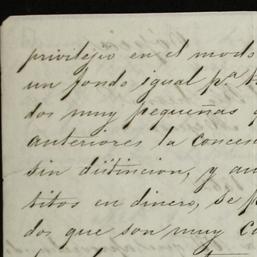 privilejio en el modo
un fondo igual p.ª
dos muy pequeñas
anteriores la conces
sin distincion, y au
titos en dinero, se p
dos que son muy